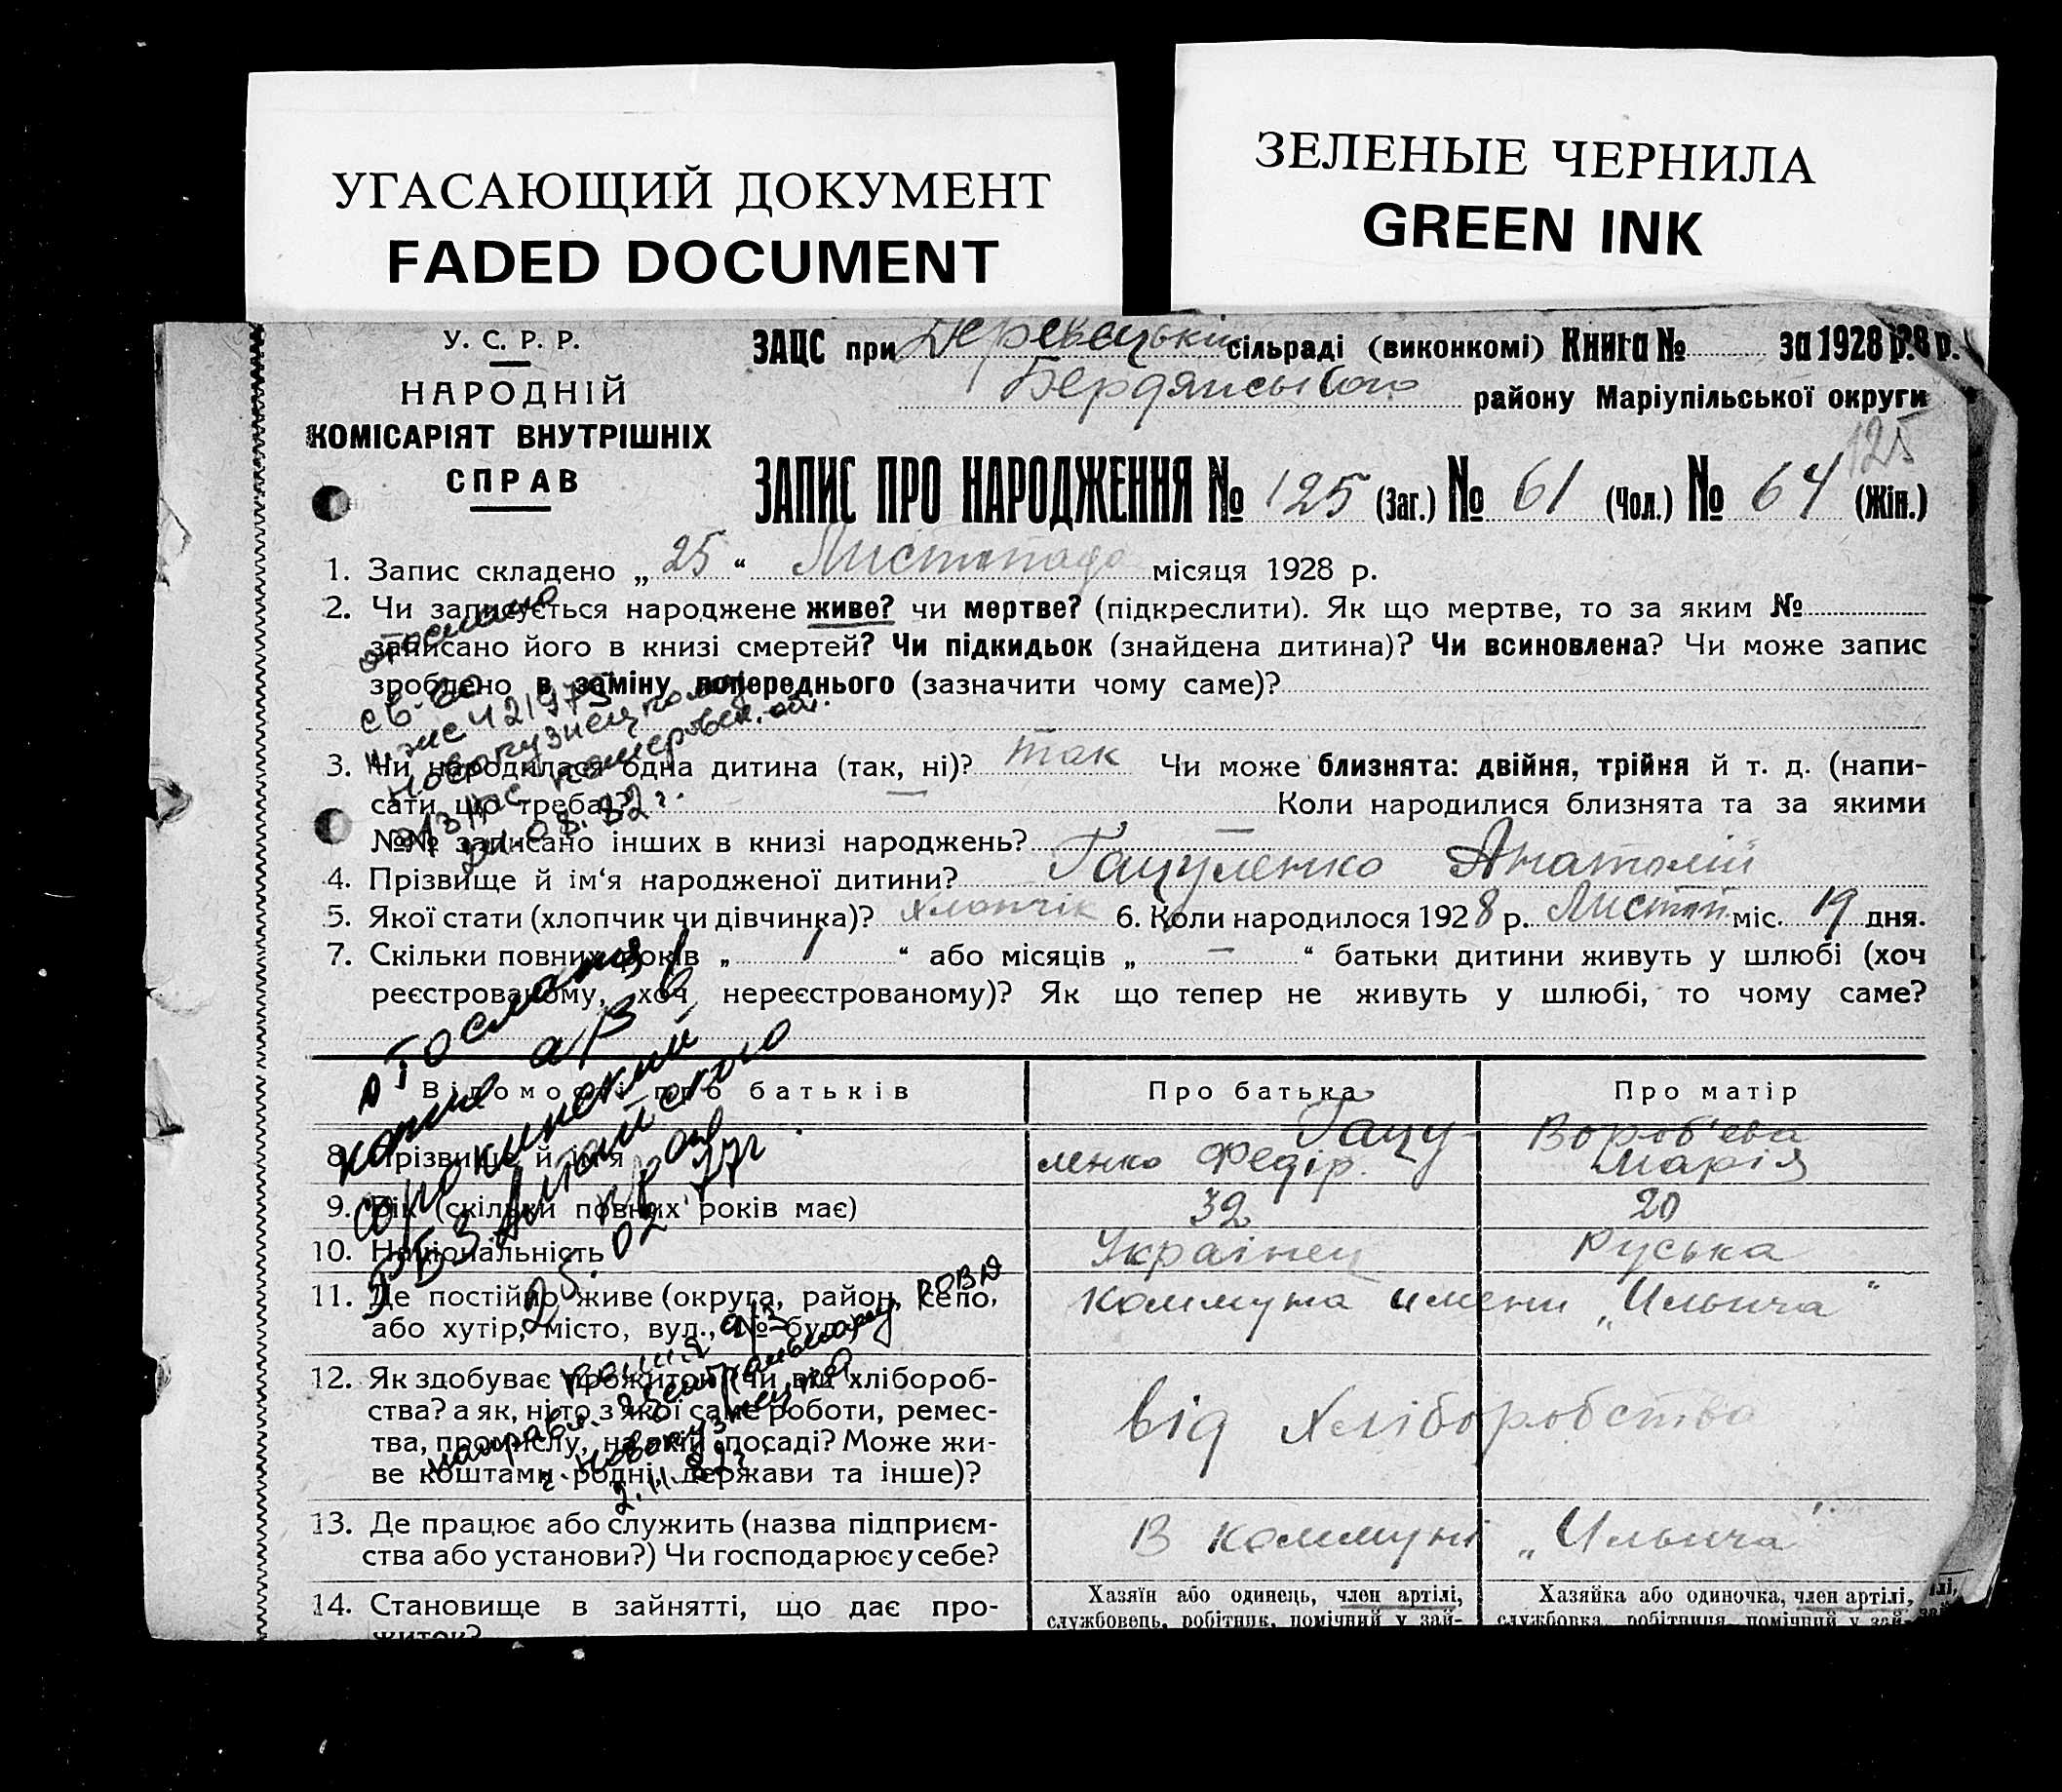 УГАСАЮЩИЙ ДОКУМЕНТ
FADED DOCUMENT
ЗЕЛЕНЫЕ ЧЕРНИЛА
GREEN INK
У. С. Р. Р.
НАРОДНІЙ
КОМІСАРІЯТ ВНУТРІШНІХ
СПРАВ
ЗАЦС при сільраді (виконкомі) Книга № за 1928 р.
Бердянського району Маріупільської округи
125
ЗАПИС ПРО НАРОДЖЕННЯ № 125 (Заг.) № 61 (Чол.) № 64 (Жін.)
1. Запис складено „ 25 “ Листопада місяця 1928 р.
2. Чи записується народжене живе? чи мертве? (підкреслити). Як що мертве, то за яким №
записано його в книзі смертей? Чи підкидьок (знайдена дитина)? Чи всиновлена? Чи може запис
зроблено в заміну попереднього (зазначити чому саме)?
3. Чи народилася одна дитина (так, ні)? так Чи може близнята: двійня, трійня й т. д. (напи-
сати що треба)? — Коли народилися близнята та за якими
№№ записано інших в книзі народжень? —
4. Прізвище й ім‘я народженої дитини? Гацуленко Анатолій
5. Якої стати (хлопчик чи дівчинка)? хлопчік 6. Коли народилося 1928 р. Листоп. міс. 19 дня.
7. Скільки повних років „ 1 “ або місяців „ — “ батьки дитини живуть у шлюбі (хоч
реєстрованому, хоч нереєстрованому)? Як що тепер не живуть у шлюбі, то чому саме?
Відомості про батьків Про батька Про матір
8. Прізвище й ім'я Гацу-
ленко Федір. Вороб'ева
Марія
9. Вік (скільки повних років має) 32 20
10. Національність Украінец Руська
11. Де постійно живе (округа, район, село,
або хутір, місто, вул., № буд.) коммуна имени „Ильича“
12. Як здобуває прожиток (чи від хлібороб-
ства? а як, ні то з якої саме роботи, ремес-
тва, промислу, на якій посаді? Може жи-
ве коштами родні, держави та інше)?
від хліборобства
13. Де працює або служить (назва підприєм-
ства або установи?) Чи господарює у себе?
В коммуні „Ильича“
14. Становище в зайнятті, що дає про-
житок?
Хазяїн або одинець, член артілі,
службовець, робітник, помічний у зай-
Хазяйка або одиночка, член артілі,
службовка, робітниця, помічний у зай-
отослано
св-во
новокузнецкому
кемеровск. об.
21.08.82 г.
отослана
копия а/з в
сорокинский
РБЗ Алтайского
края
25.02.77г
копия а/з
направл. центральному РОВД
г. Новокузнецка
2.11.82г